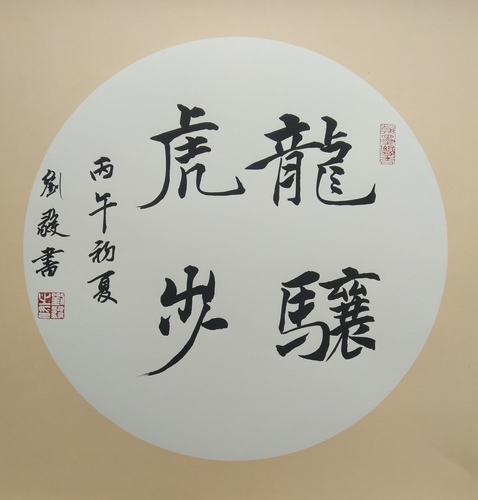 龍驤
虎步
丙午初夏
劉毅書